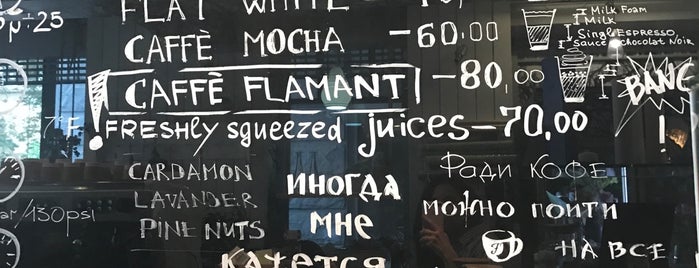 FLAT WHITE
CAFFÈ MOCHA -60,00
! CAFFÈ FLAMANT -80,00
FRESHLY squeezed juices-70,00
Milk Foam
Milk
Single Espresso
Sauce Chocolat Noir
BANG!
CARDAMON
LAVANDER
PINE NUTS
иногда
мне
кажется
Ради кофе
можно пойти
на все
/130psi